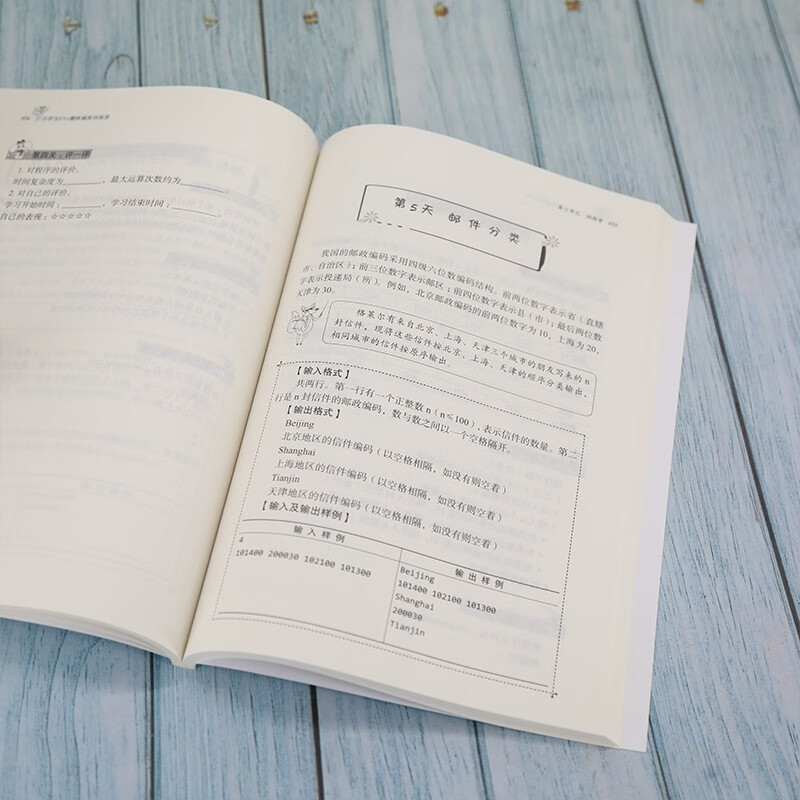 第四关：评一评
1. 对程序的评价。
时间复杂度为________，最大运算次数约为________。
2. 对自己的评价。
学习开始时间：________，学习结束时间：________。
自己的表现：☆☆☆☆☆
第5天 邮件分类
我国的邮政编码采用四级六位数编码结构。前两位数字表示省（直辖
市、自治区）；前三位数字表示邮区；前四位数字表示县（市）；最后两位数
字表示投递局（所）。例如，北京邮政编码的前两位数字为10，上海为20，
天津为30。
格莱尔有来自北京、上海、天津三个城市的朋友写来的n
封信件，现将这些信件按北京、上海、天津的顺序分类输出，
相同城市的信件按原序输出。
【输入格式】
共两行。第一行有一个正整数n（n≤100），表示信件的数量。第二
行是n封信件的邮政编码，数与数之间以一个空格隔开。
【输出格式】
Beijing
北京地区的信件编码（以空格相隔，如没有则空着）
Shanghai
上海地区的信件编码（以空格相隔，如没有则空着）
Tianjin
天津地区的信件编码（以空格相隔，如没有则空着）
【输入及输出样例】
输入样例
4
101400 200030 102100 101300
输出样例
Beijing
101400 102100 101300
Shanghai
200030
Tianjin